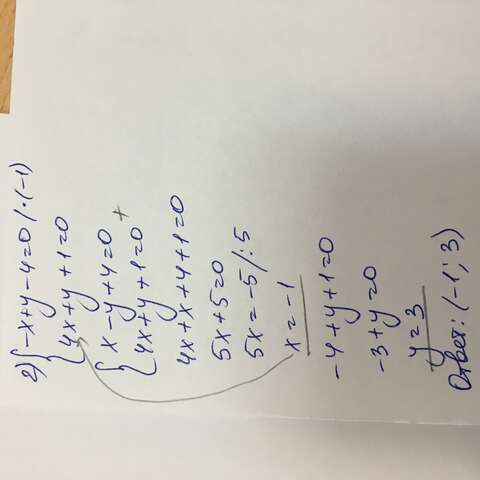 2) { -x+y-4=0 / ·(-1)
4x+y+1=0
{ x-y+4=0 +
4x+y+1=0
4x+x+y+1=0
5x+5=0
5x=-5 / :5
x=-1
-4+y+1=0
-3+y=0
y=3
Ответ: (-1; 3)